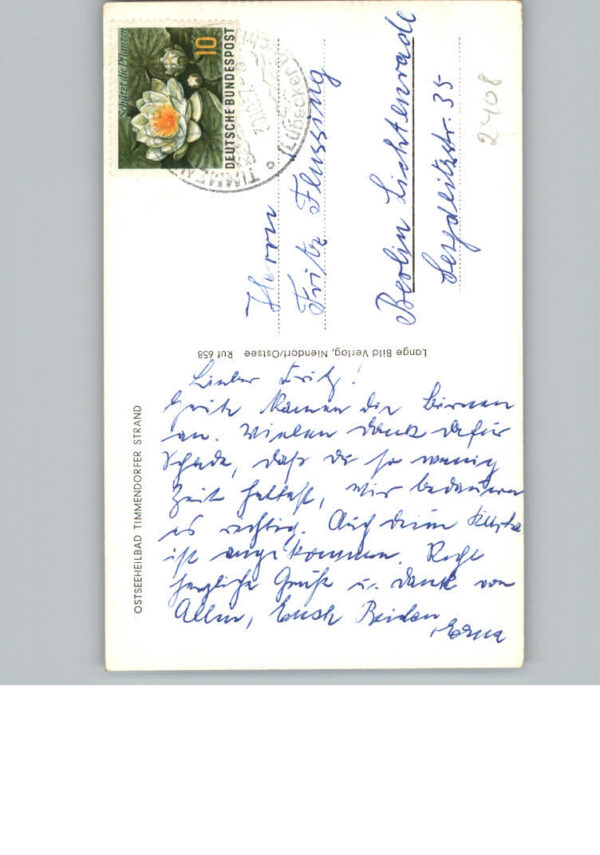 Schützt die Pflanzen
10
DEUTSCHE BUNDESPOST
TIMMEN
(Lübecker Bucht)
Herrn
Fritz Flessing
Berlin Lichtenrade
Seydlitzstr. 35
2408
Lange Bild Verlag, Niendorf/Ostsee Ruf 658
OSTSEEHEILBAD TIMMENDORFER STRAND
Lieber Fritz!
Heute kamen die Birnen
an. Vielen Dank dafür
Schade, daß du so wenig
Zeit hattest, wir bedauern
es richtig. Auch deine
ist angekommen. Recht
herzliche Grüße u. Dank von
Allen, Euch Beiden
Erna